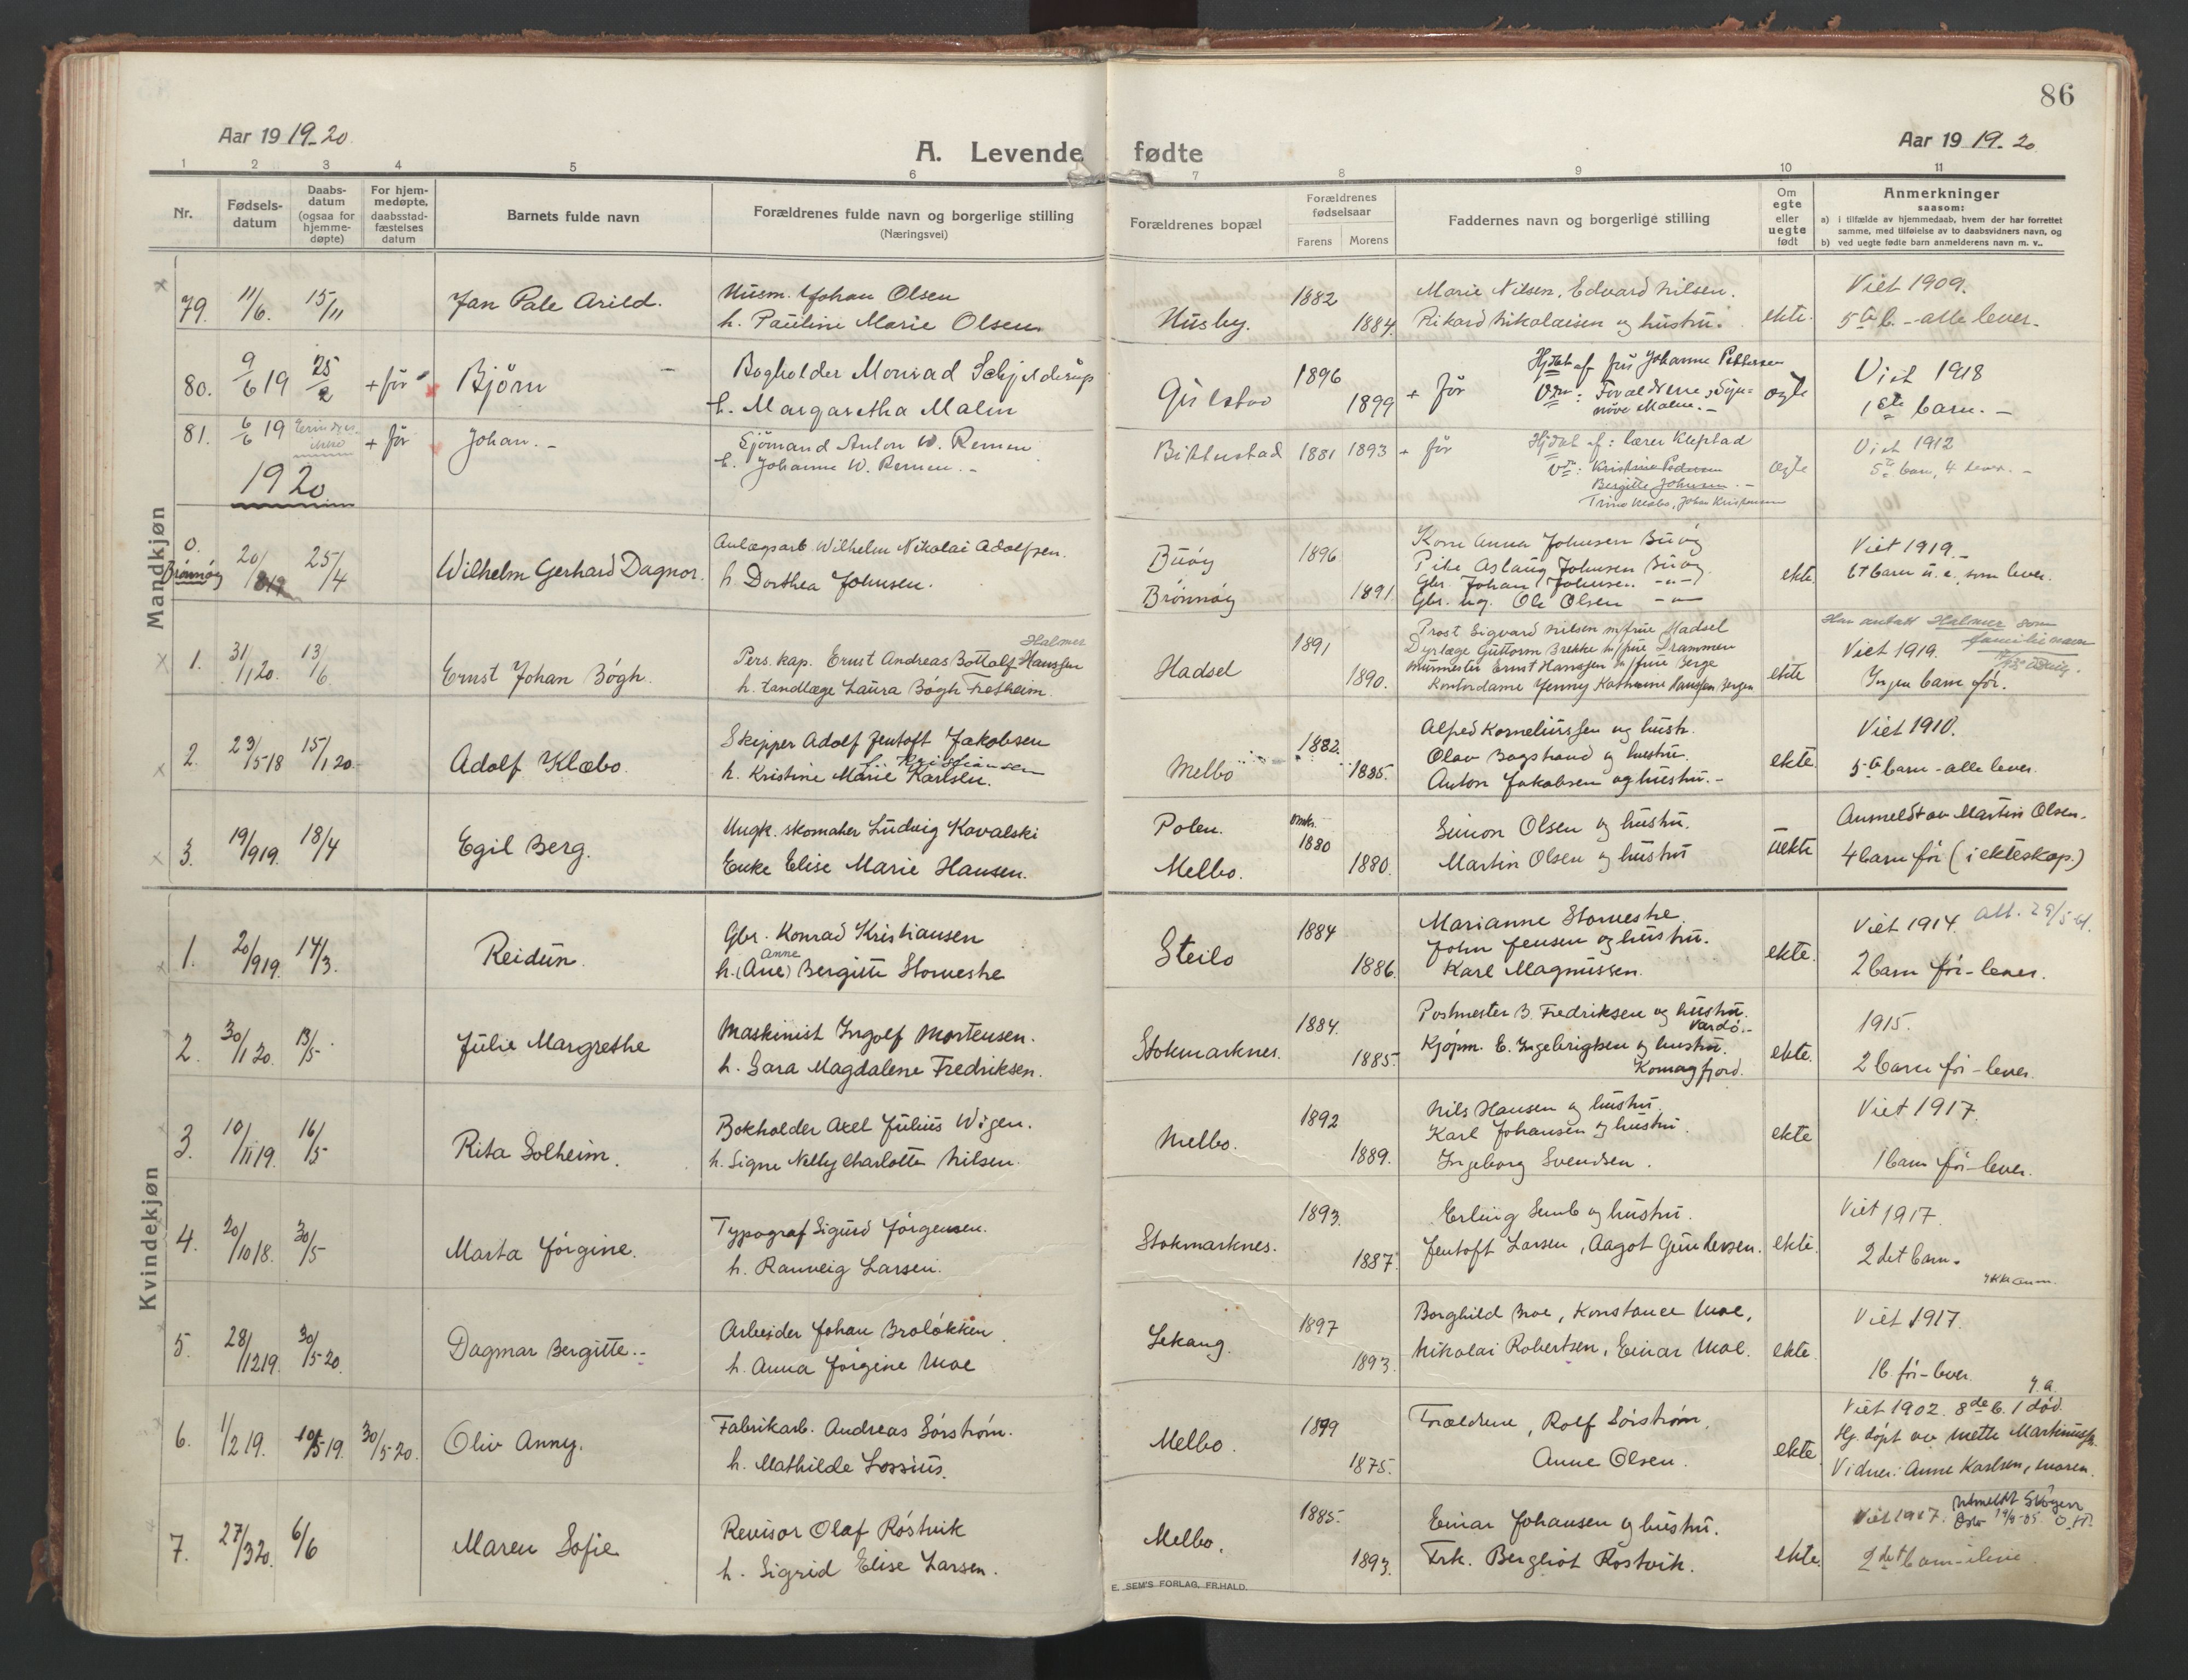 86
Aar 1919-20.
A. Levende fødte
Aar 1919-20
1 2 3 4 5 6 7 8 9 10 11
Nr.
Fødsels-
datum
Daabs-
datum
(ogsaa for
hjemme-
døpte)
For hjem-
medøpte,
daabsstad-
fæstelses
datum
Barnets fulde navn
Forældrenes fulde navn og borgerlige stilling
(Næringsvei)
Forældrenes bopæl
Forældrenes
fødselsaar
Farens Morens
Faddernes navn og borgerlige stilling
Om
egte
eller
uegte
født
Anmerkninger
saasom:
a) i tilfælde av hjemmedaab, hvem der har forrettet
samme, med tilføielse av to daabsvidners navn, og
b) ved uegte fødte barn anmelderens navn m. v..
Mandkjøn
79. 11/6. 15/11 Jan Pale Arild.
Husm. Johan Olsen
h. Pauline Marie Olsen.
Husby. 1882 1884.
Marie Nilsen, Edvard Nilsen.
Rikard Nikolaisen og hustru.
ekte.
Viet 1909.
5te b. - alle lever.
80. 9/6 19 25/2 + før Bjørn
Bogholder Monrad Schjelderup
h. Margaretha Malm
Gulstad 1896 1899 + før
Hjdøbt af fru Johanne Pettersen
Vdn: Forældrene, Syn-
növe Malm. -
egte
Viet 1918
1ste barn. -
81. 6/6 19 + før Johan. -
Sjømand Anton W. Remen
h. Johanne W. Remen. -
Bitterstad 1881 1893 + før
Hjdøbt af: lærer Kleppstad
Vdn: Kristine Pedersen
Bergitte Johnsen. -
egte
Viet 1912
5te barn, 4 lever. -
1920
0. Brønnøy 20/8 19 25/4 Wilhelm Gerhard Dagnor.
Anlægsarb. Wilhelm Nikolai Adolfsen.
h. Dorthea Johnsen.
Buøy
Brønnøy 1896 1891
Kone Anna Johnsen Buøy
Pike Aslaug Johnsen Buøy
Gbr. Johan Johnsen -"-
Gbr. ug. Ole Olsen -"-
ekte.
Viet 1919. -
1ste barn u. e. som lever.
1. 31/1 20. 13/6. Ernst Johan Bøgh.
Halmer
Pers. kap. Ernst Andreas Bottolf Hanssen
h. tandlæge Laura Bøgh Fretheim.
Hadsel 1891 1890.
Prost Sigvard Nilsen m/frue Hadsel
Dyrlæge Guttorm Brekke m/frue Drammen
Murmester Ernst Hanssen m/frue Berge
Kontordame Jenny Kathrine Hanssen, Bergen
ekte
Har antatt Halmer som
familienavn
Viet 1919.
Ingen barn før.
2. 23/5 18 15/1 20. Adolf Klæbo.
Skipper Adolf Jentoft Jakobsen
Kristiansen
h. Kristine Marie Karlsen.
Melbo 1882. 1885.
Alfred Korneliussen og hustr.
Olav Bogstrand og hustru.
Anton Jakobsen og hustru. -
ekte.
Viet 1910.
5te barn - alle lever.
3. 19/9 19. 18/4 Egil Berg.
Ungk. skomaker Ludvig Kovalski
Enke Elise Marie Hansen.
Polen.
Melbo. omkr. 1880 1880.
Simon Olsen og hustru.
Martin Olsen og hustru
uekte
Anmeldt av Martin Olsen.
4 barn før (i ekteskap.)
Kvindekjøn
1. 20/9 19. 14/3. Reidun.
Gbr. Konrad Kristiansen
Anne
h. (Ane) Bergitte Storneshe
Steilo 1884 1886.
Marianne Storneshe.
John Jensen og hustru.
Karl Magnussen.
ekte.
Viet 1914. att. 29/5-61.
2 barn før - lever.
2. 30/1 20. 13/5 Julie Margrethe
Maskinist Ingolf Mortensen.
h. Sara Magdalene Fredriksen.
Stokmarknes. 1884. 1885.
Postmester B. Fredriksen og hustru.
Vardø. -
Kjøpm. E. Ingebrigtsen og hustru.
Komagfjord.
ekte.
1915.
2 barn før - lever.
3. 10/11 19. 16/5 Rita Solheim.
Bokholder Axel Julius Wigen.
h. Signe Nelly Charlotte Nilsen.
Melbo. 1892 1889.
Nils Hansen og hustru.
Karl Johansen og hustru.
Ingeborg Svendsen.
ekte
Viet 1917.
1 barn før - lever.
4. 20/10 18. 30/5 Marta Jørgine.
Typograf Sigurd Jørgensen.
h. Ranveig Larsen.
Stokmarknes. 1893. 1887.
Erling Sund og hustru.
Jentoft Larsen, Aagot Gundersen.
ekte.
Viet 1917.
2det barn.
ikke anm.
5. 28/12 19. 30/5 20. Dagmar Bergitte. -
Arbeider Johan Broløkken.
h. Anna Jørgine Moe
Lekang. 1897 1893.
Borghild Moe, Konstance Moe,
Nikolai Robertsen, Einar Moe.
ekte.
Viet 1917.
1 b. før - lever.
6. 1/2 19. 10/5 19. 30/5 20. Oliv Anny.
Fabrikarb. Andreas Sørstrøm.
h. Mathilde Lossius.
Melbo. 1879 1875.
Forældrene, Rolf Sørstrøm,
Anne Olsen.
ekte.
Viet 1902. 8de b. 1 død.
Hj. døpt av Mette Martinussen.
Vidner: Anne Karlsen, Maren.
7. 27/3 20. 6/6 Maren Sofie
Revisor Olaf Røstvik
h. Sigrid Elise Larsen.
Melbo. 1885. 1893.
Einar Johansen og hustru.
Frk. Bergliot Røstvik.
ekte.
Viet 1917. Utmeldt Skøyen
Oslo
2det barn i live.
E. SEM'S FORLAG, FR.HALD.